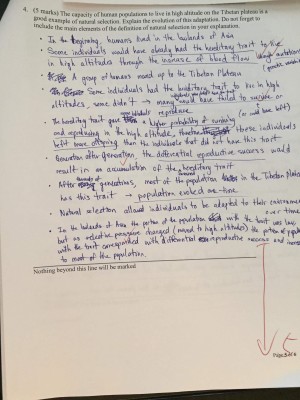 4. (5 marks) The capacity of human populations to live in high altitude on the Tibetan plateau is a
good example of natural selection. Explain the evolution of this adaptation. Do not forget to
include the main elements of the definition of natural selection in your explanation.
• In the beginning, humans lived in the lowlands of Asia
• Some individuals would have already had the hereditary trait to live
in high altitudes through the increase of blood flow
• A group of humans moved up to the Tibetan Plateau
• Some individuals had the hereditary trait to live in high
altitudes, some didn't → many would have failed to survive or
reproduce (or would have left)
• The hereditary trait gave a higher probability of surviving
and reproducing in the high altitude, therefore these individuals
left more offspring than the individuals that did not have this trait
• Generation after generation, the differential reproductive success would
result in an accumulation of the hereditary trait
• After generations, most of the population in the Tibetan Plateau
has this trait → population evolved
• Natural selection allowed individuals to be adapted to their environment
over time
• In the lowlands of Asia the portion of the population with the trait was low,
but as selective pressure changed (moved to high altitudes) the portion of
with the trait corresponded with differential reproductive success and
to most of the population.
Nothing beyond this line will be marked
5
Page 5 of 6